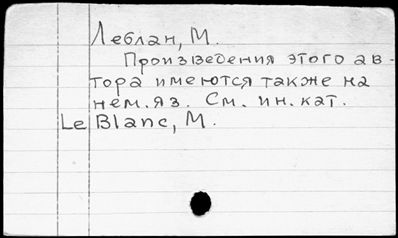 Леблан, М.
Произведения этого ав-
тора имеются также на
нем. яз. См. ин. кат.
Le Blanc, M.